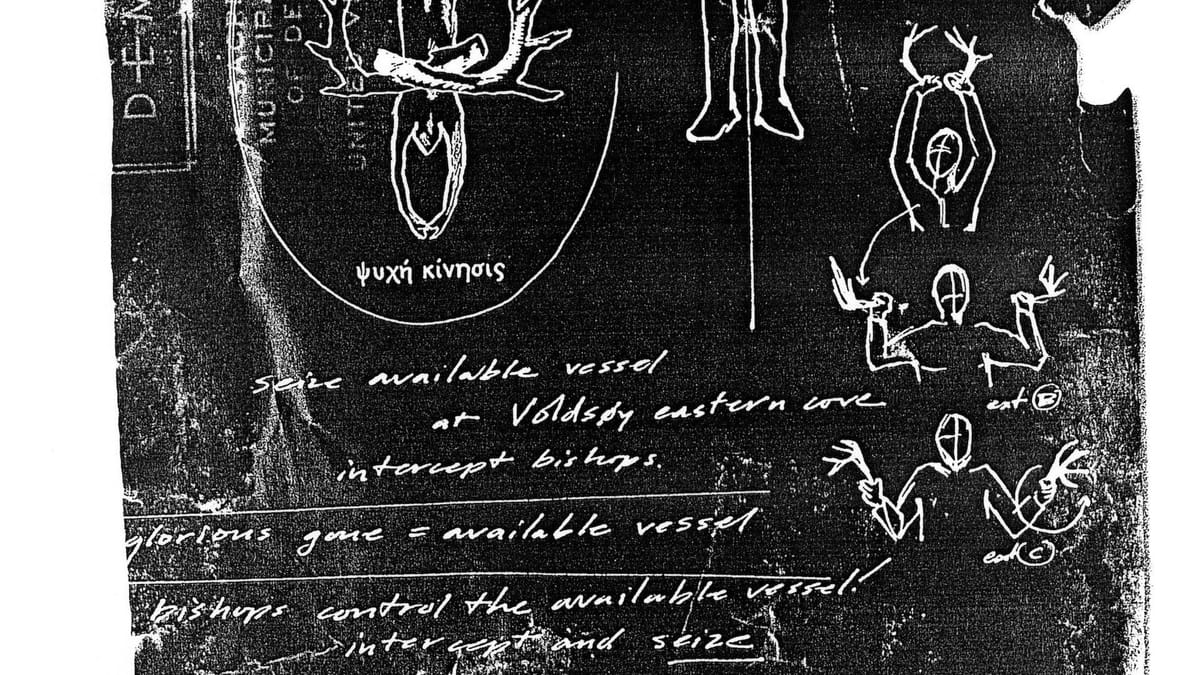 DEM
MURICIPA
OF DE
UNITE
ψυχή κίνησις
seize available vessel
at Voldsøy eastern cove
intercept bishops.
glorious gone = available vessel
bishops control the available vessel!
intercept and seize
ext B
ext C